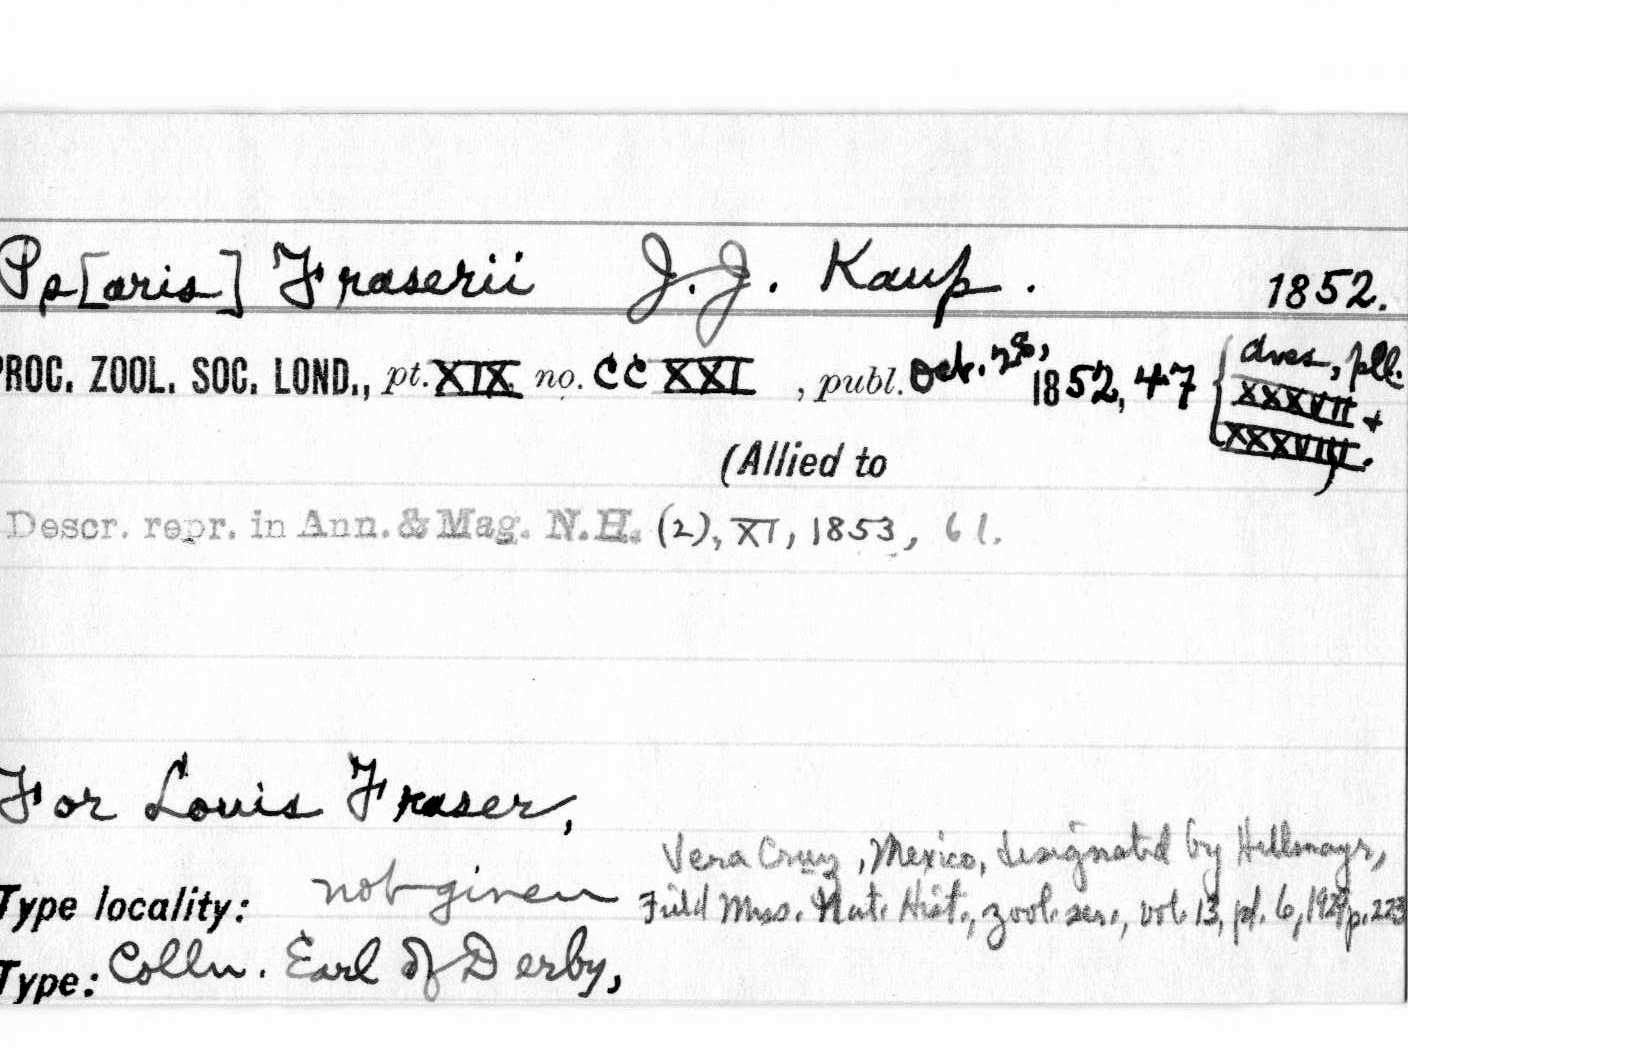 Ps[aris] Fraserii J.J. Kaup. 1852.
PROC. ZOOL. SOC. LOND., pt. XIX no. CCXXI , publ. Oct. 28, 1852, 47 { aves, pll. XXXVII + XXXVIII.
(Allied to )
Descr. repr. in Ann. & Mag. N.H. (2), XI, 1853, 61.
For Louis Fraser,
Vera Cruz, Mexico, designated by Hellmayr,
Type locality: not given Field Mus. Nat. Hist., zool. ser., vol. 13, pt. 6, 1929, p. 223
Type: Colln. Earl of Derby,